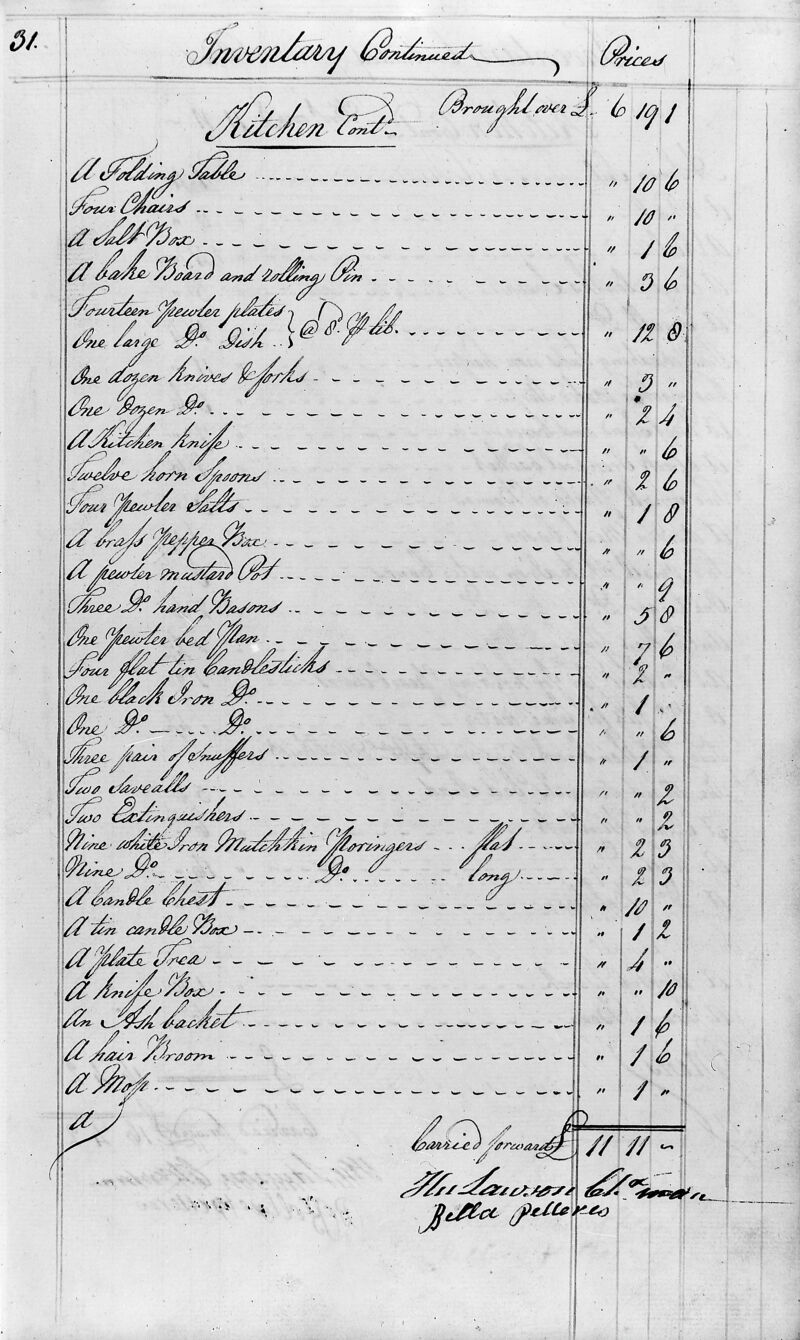 31.
Inventary Continued Prices
Brought over £. 6 19 1
Kitchen Contd
A Folding Table " 10 6
Four Chairs " 10 "
A Salt Box " 1 6
A bake Board and rolling Pin " 3 6
Fourteen pewter plates
One large Do. Dish @ 8d. ⅌ lib. " 12 8
One dozen knives & forks " 3 "
One dozen Do. " 2 4
A Kitchen knife " " 6
Twelve horn Spoons " 2 6
Four Pewter Salts " 1 8
A brass pepper Box " " 6
A pewter mustard Pot " " 9
Three Do. hand Basons " 5 8
One pewter bed Pan " 7 6
Four flat tin Candlesticks " 2 "
One black Iron Do. " 1 "
One Do. Do. " " 6
Three pair of Snuffers " 1 "
Two Savealls " " 2
Two Extinguishers " " 2
Nine white Iron Mutchkin Poringers flat " 2 3
Nine Do. Do. long " 2 3
A Candle Chest " 10 "
A tin candle Box " 1 2
A plate Trea " 4 "
A knife Box " " 10
An Ash backet " 1 6
A hair Broom " 1 6
A Mop " 1 "
A
Carried forward £ 11 11 "
Lawson
Bella